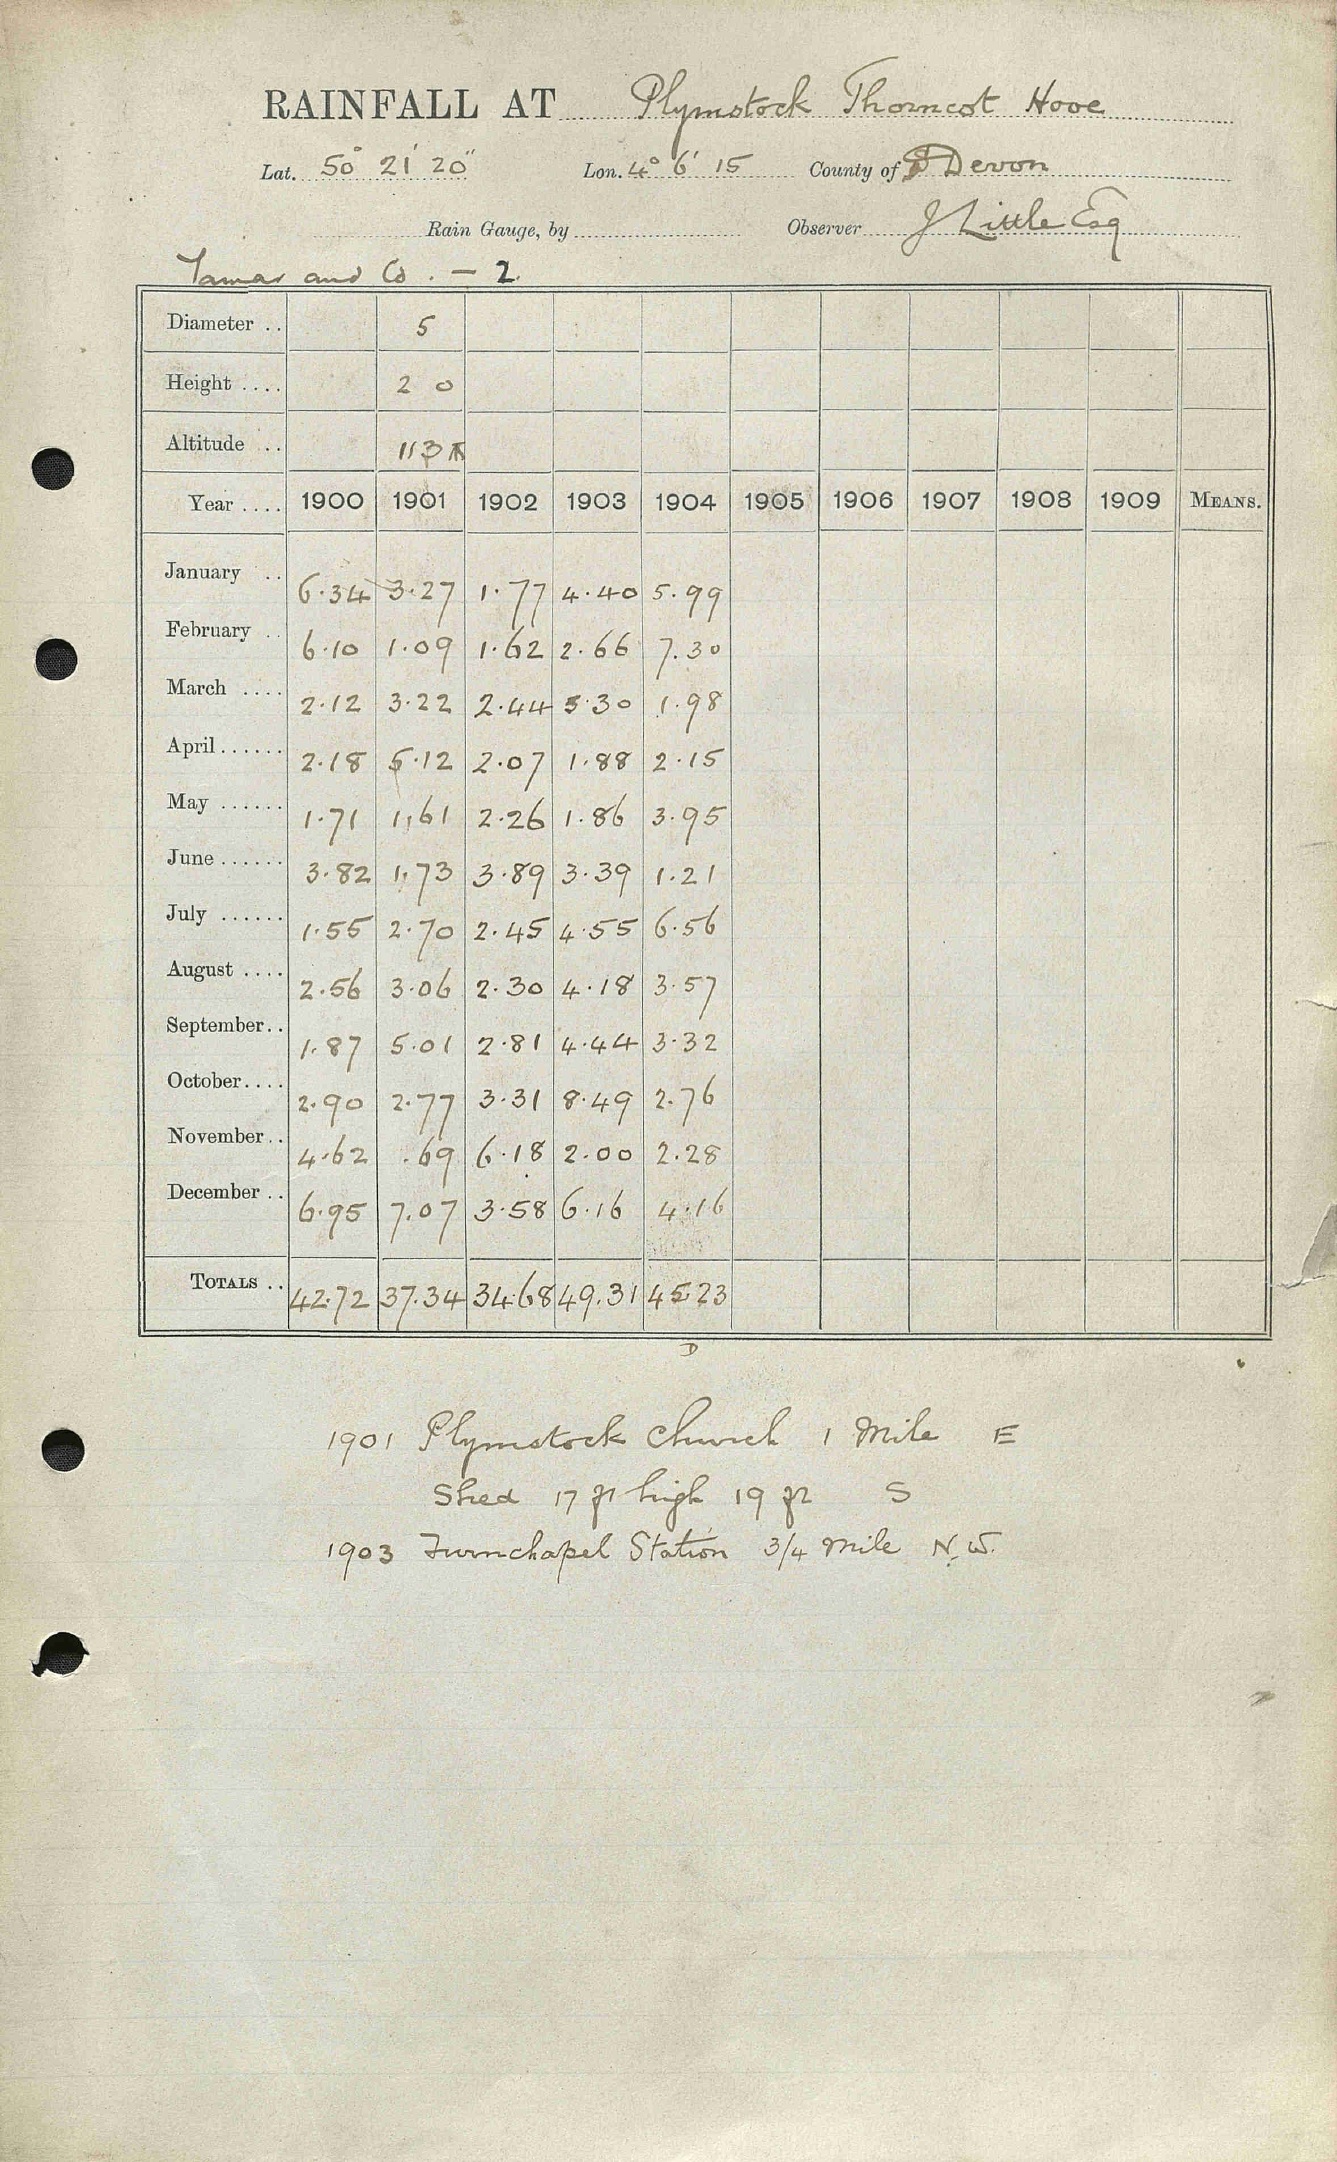 RAINFALL AT Plymstock Thorncot Hooe
Lat. 50° 21' 20" Lon. 4° 6' 15 County of Devon
Rain Gauge, by Observer J Little Esq
Tamar and Co. — 2.
Diameter .. 5
Height .... 2 0
Altitude .. 113 ft
Year .... 1900 1901 1902 1903 1904 1905 1906 1907 1908 1909 MEANS.
January .. 6.34 3.27 1.77 4.40 5.99
February .. 6.10 1.09 1.62 2.66 7.30
March .... 2.12 3.22 2.44 5.30 1.98
April ...... 2.18 5.12 2.07 1.88 2.15
May ...... 1.71 1.61 2.26 1.86 3.95
June ...... 3.82 1.73 3.89 3.39 1.21
July ...... 1.55 2.70 2.45 4.55 6.56
August .... 2.56 3.06 2.30 4.18 3.57
September.. 1.87 5.01 2.81 4.44 3.32
October.... 2.90 2.77 3.31 8.49 2.76
November.. 4.62 .69 6.18 2.00 2.28
December .. 6.95 7.07 3.58 6.16 4.16
TOTALS .. 42.72 37.34 34.68 49.31 45.23
D
1901 Plymstock Church 1 Mile E
Shed 17 ft high 19 ft S
1903 Turnchapel Station 3/4 Mile N.W.